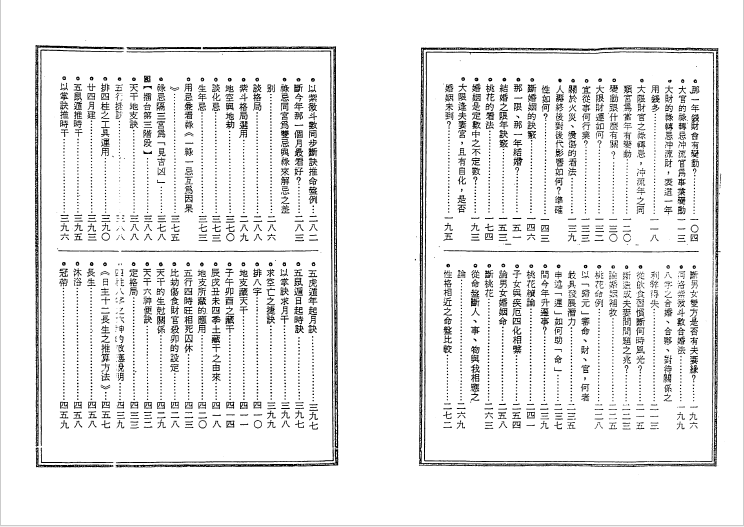 ●那一年錢財會有變動?……一〇四
●大官的祿轉忌沖流官爲事業變動 一一三
●大財的祿轉忌沖流財,要這一年
用錢多……一一八
●大限財官之祿轉忌,沖流年之同
類宮爲當年有變動……一二〇
●變動跟什麼有關?……一三〇
●大限財運如何?……一三二
●宜從事何行業?……一三三
●關於火災、燙傷的看法……一三九
●人壽終後對後代影響如何?準確
性如何?……一四三
●斷婚姻的訣竅……一四六
●那一限、那一年結婚?……一五一
●結婚之限年訣竅……一五三
●桃花的看法……一七四
●婚姻是定數中之不定數?……一九三
●大限逢夫妻宮,且有自化,是否
婚姻未到?……一九五
●斷男女雙方是否有夫妻緣?……一九六
●河洛紫微斗數合婚法……一九九
●八字之合婚、合夥、對待關係之
利弊得失……二一三
●斷造成夫妻間問題之兆?……二二三
●論婚姻補救……二二五
●桃花命例……二二八
●以「歸元」審命、財、官,何者
最具發展潛力……二三五
●申造「運」如何助「命」……二三七
●問今年升遷事?……二三九
●桃花續論……二四一
●子女與疾厄四化相繫……二五四
●論男女婚姻命……二五八
●斷桃花……二六三
●從命盤斷人、事、物與我相應之
論……二六九
●性格相近之命盤比較……二七二
●以紫微斗數同步斷訣推命盤例……二八二
●斷今年那一個月最看好?……二八三
●祿忌同宮爲雙忌與祿來解忌之差
別……二八六
●談格局……二八八
●紫斗格局選用……二八九
●地空與地劫……三七〇
●談化忌……三七三
●生年忌……三七三
●用忌兼看祿《一祿一忌互爲因果
》……三七五
●祿忌隔三宮爲「見吉凶」……三七八
【擂台第三階段】……三八八
●天干地支訣……三八八
●五行掛訣
●排四柱之工具運用……三九〇
●廿四月建……三九三
●五鼠遁推時干……三九五
●以掌訣推時干……三九六
●五虎遁年起月訣……三九七
●五鼠遁日起時訣……三九七
●以掌訣求月干……三九八
●求空亡之捷訣……三九九
●排八字……四一〇
●地支藏天干……四一一
●子午卯酉之藏干……四一四
●辰戌丑未四季土藏干之由來……四一八
●地支所藏的應用……四二〇
●五行四時旺相死囚休……四二三
●比劫傷食財官殺印的設定……四二八
●天干的生尅關係……四二九
●天干六神便訣……四三二
●定格局……四三三
●《日主十二長生之推算方法》……四五七
●長生……四五八
●沐浴……四五九
●冠帶……四五九